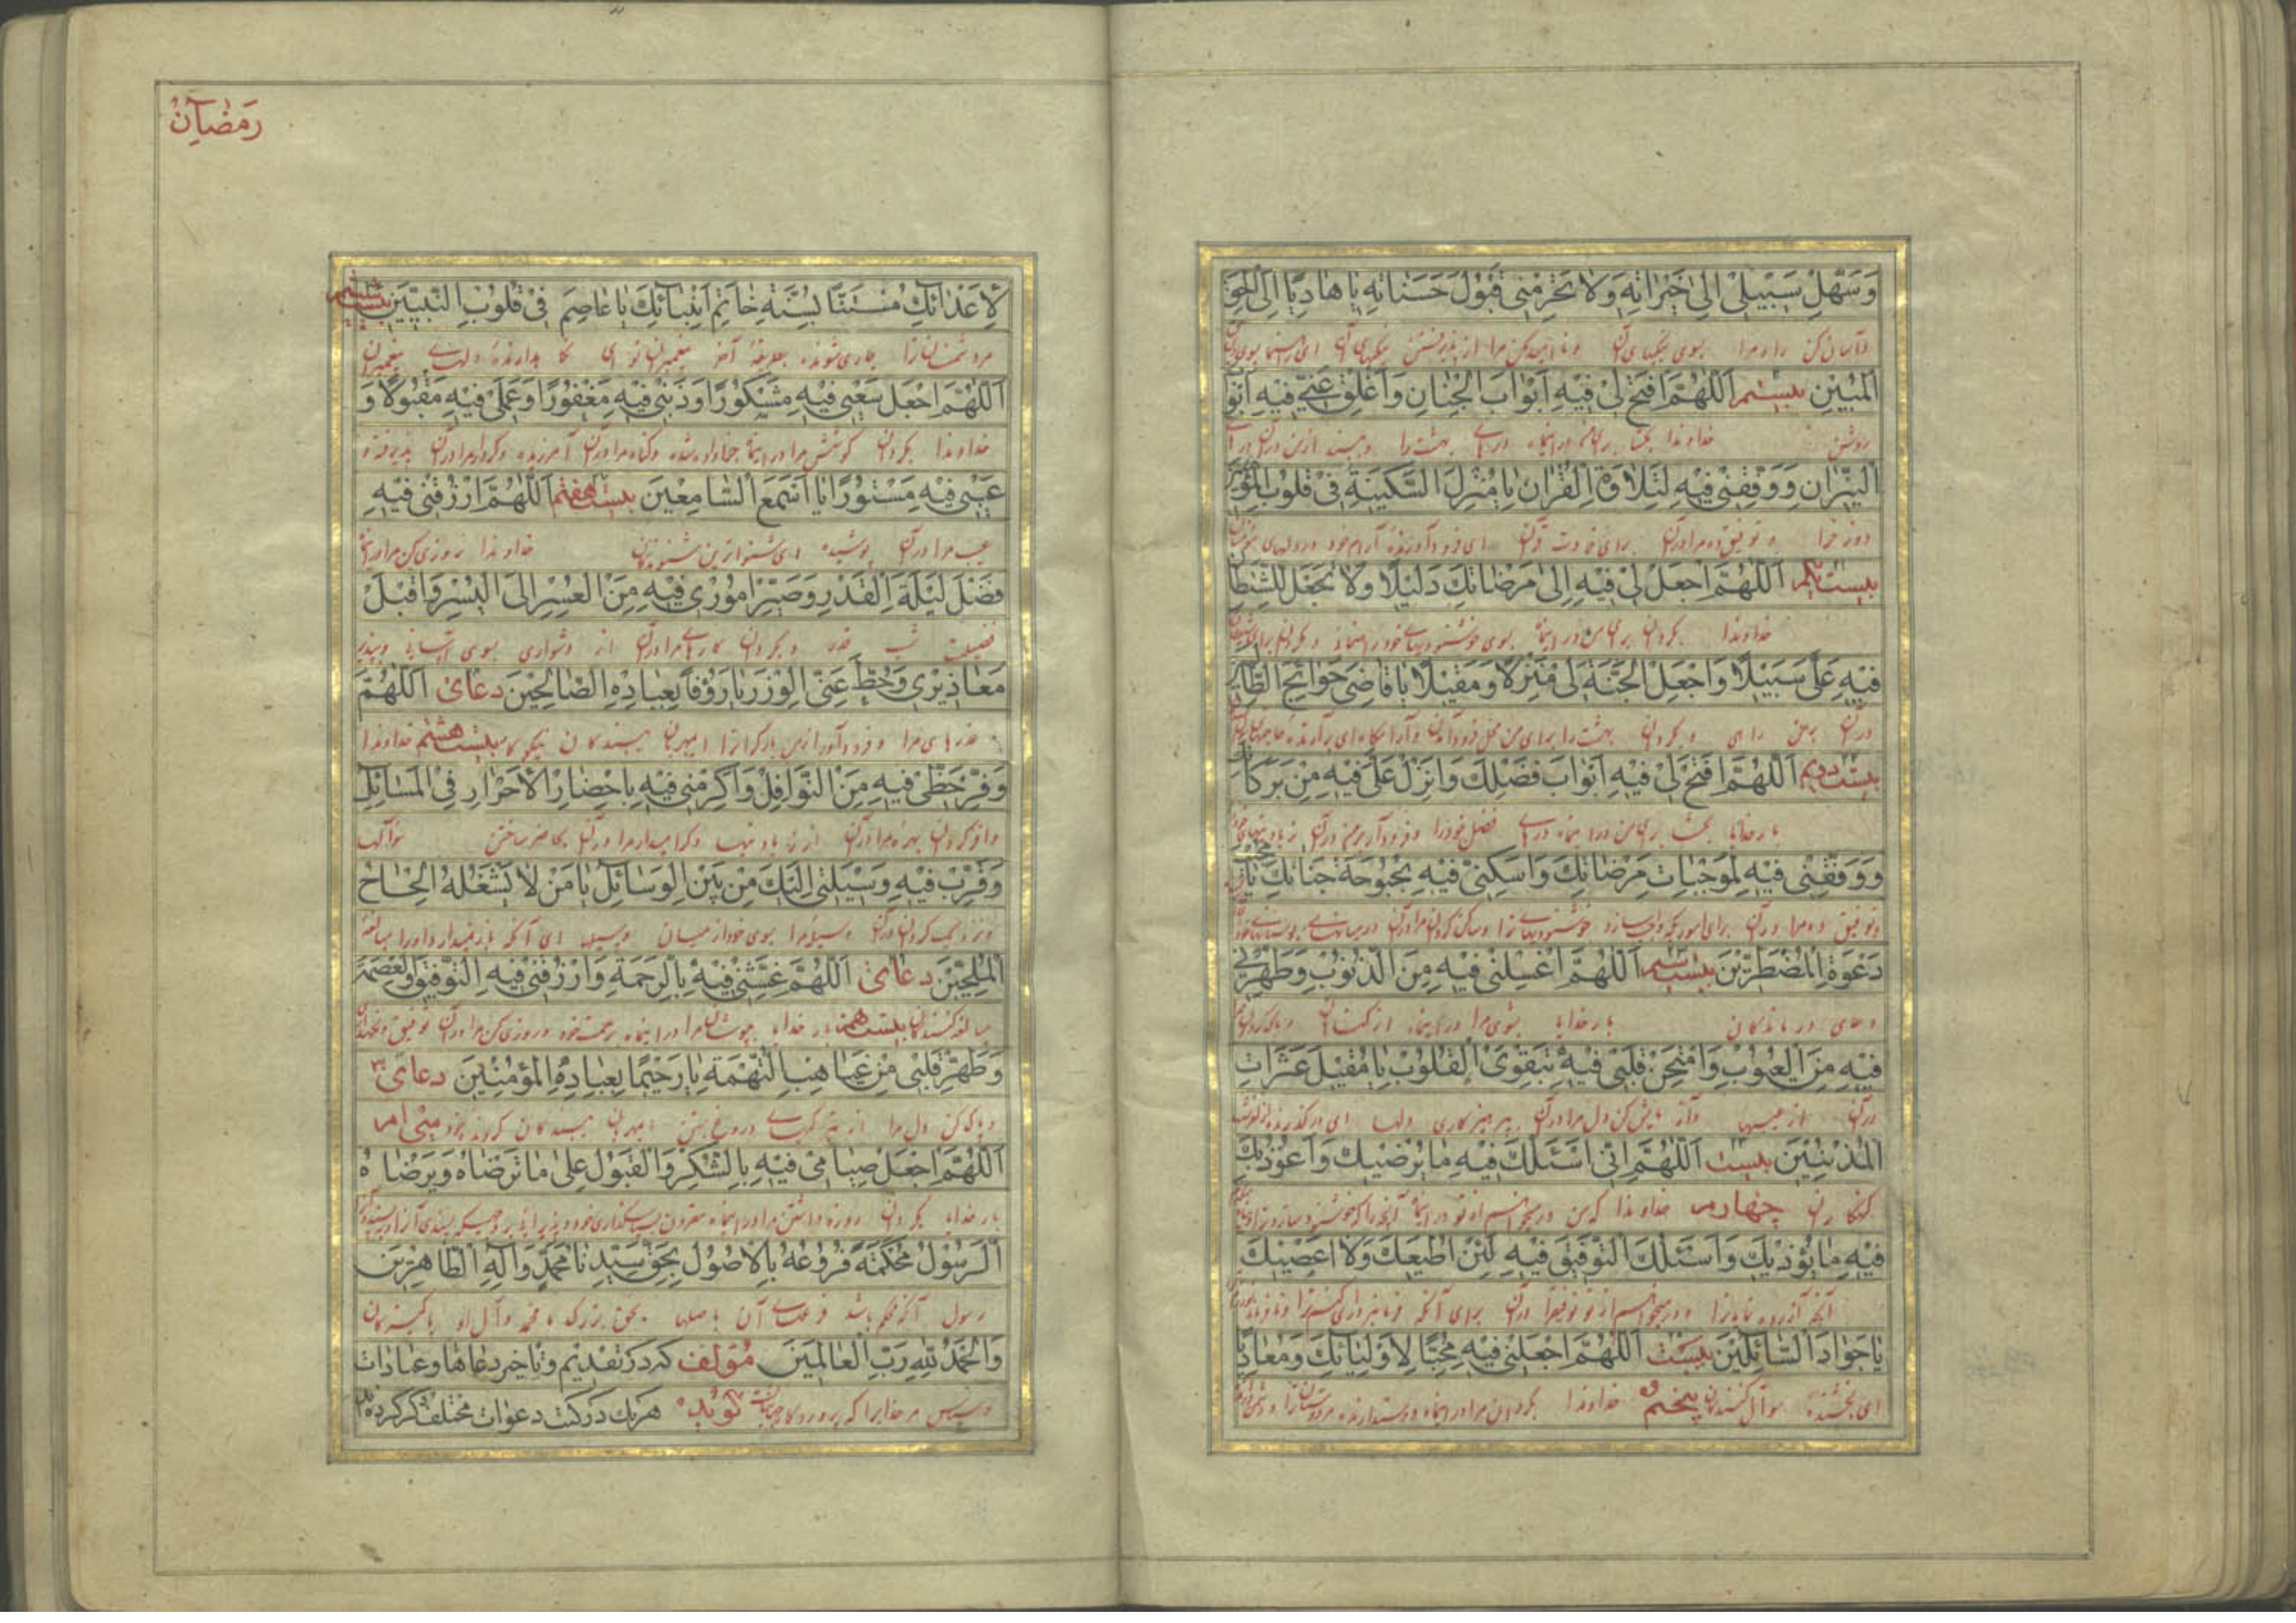 وَسَهِّلْ سَبیلی اِلیٰ خَیْراتِهِ وَلا تَحْرِمْنی قَبُولَ حَسَناتِهِ یا هادِیًا اِلَی الْحَقِّ
وآسان کن راه مرا بسوی نیکیهای آن و ناامید مکن مرا از پذیرفتن نیکیهای آن ای راه نما بسوی حق
الْمُبینِ بیستم اَللّهُمَّ افْتَحْ لی فیهِ اَبْوابَ الْجِنانِ وَاَغْلِقْ عَنّی فیهِ اَبْوابَ
روشن خداوندا بکشا برای من در اینماه درهای بهشت را و ببند از من در آن درهای
النّیرانِ وَوَفِّقْنی فیهِ لِتِلاوَةِ الْقُرْانِ یا مُنْزِلَ السَّکینَةِ فی قُلُوبِ الْمُؤْمِنینَ
دوزخ را و توفیق ده مرا در آن برای تلاوت قرآن ای فرود آورندهٔ آرام خود در دلهای مؤمنان
بیست یکم اَللّهُمَّ اجْعَلْ لی فیهِ اِلیٰ مَرْضاتِکَ دَلیلًا وَلا تَجْعَلْ لِلشَّیْطانِ
خداوندا بگردان برای من در اینماه بسوی خوشنودیهای خود راهنما و مگردان برای شیطان
فیهِ عَلَیَّ سَبیلًا وَاجْعَلِ الْجَنَّةَ لی مَنْزِلًا وَمَقیلًا یا قاضِیَ حَوائِجِ الطّالِبینَ
در آن بر من راهی و بگردان بهشت را برای من محل فرود آمدن و آرامگاه ای برآرندهٔ حاجتهای
بیست دویم اَللّهُمَّ افْتَحْ لی فیهِ اَبْوابَ فَضْلِکَ وَاَنْزِلْ عَلَیَّ فیهِ مِنْ بَرَکاتِکَ
بار خدایا بکشا برای من در اینماه درهای فضل خود را و فرود آر بر من در آن
وَوَفِّقْنی فیهِ لِمُوجِباتِ مَرْضاتِکَ وَاَسْکِنّی فیهِ بُحْبُوحَةَ جَنّاتِکَ یا مُجیبَ
و توفیق ده مرا در آن برای خوشنودیهای ترا و ساکن گردان مرا در آن در میانهای
دَعْوَةِ الْمُضْطَرّینَ بیست سیم اَللّهُمَّ اغْسِلْنی فیهِ مِنَ الذُّنُوبِ وَطَهِّرْنی
دعای درماندگان بار خدایا بشوی مرا در اینماه از گناهان و پاک گردان مرا
فیهِ مِنَ الْعُیُوبِ وَامْتَحِنْ قَلْبی فیهِ بِتَقْوَی الْقُلُوبِ یا مُقیلَ عَثَراتِ
در آن از عیبها و آزمایش کن دل مرا در آن بپرهیزکاری دلها ای درگذرنده از لغزشهای
الْمُذْنِبینَ بیست اَللّهُمَّ اِنّی اَسْئَلُکَ فیهِ ما یُرْضیکَ وَاَعُوذُ بِکَ
گنهکاران چهارم خداوندا که من درمیخواهم از تو در اینماه آنچه را که خوشنود سازد ترا
فیهِ مِمّا یُؤْذیکَ وَاَسْئَلُکَ التَّوْفیقَ فیهِ لِئَنْ اُطیعَکَ وَلا اَعْصِیَکَ
آنچه آزرده نماید ترا و درمیخواهم از تو توفیق را در آن برای آنکه فرمانبرداری کنم ترا و نافرمانی
یا جَوادَ السّائِلینَ بیست اَللّهُمَّ اجْعَلْنی فیهِ مُحِبًّا لِاَوْلِیائِکَ وَمُعادِیًا
ای بخشندهٔ سؤال کنندگان پنجم خداوندا بگردان مرا در اینماه دوستدارنده مر دوستان ترا و دشمن دارنده
رمضان
لِاَعْدائِکَ مُسْتَنًّا بِسُنَّةِ خاتَمِ اَنْبِیائِکَ یا عاصِمَ فی قُلُوبِ النَّبِیّینَ بیست ششم
مر دشمنان ترا جاری شونده بطریقهٔ آخر پیغمبران تو ای نگاهدارندهٔ دلهای پیغمبران
اَللّهُمَّ اجْعَلْ سَعْیی فیهِ مَشْکُورًا وَذَنْبی فیهِ مَغْفُورًا وَعَمَلی فیهِ مَقْبُولًا وَ
خداوندا بگردان کوشش مرا در اینماه جزا داده شده و گناه مرا در آن آمرزیده و کردار مرا در آن پذیرفته و
عَیْبی فیهِ مَسْتُورًا یا اَسْمَعَ السّامِعینَ بیست هفتم اَللّهُمَّ ارْزُقْنی فیهِ
عیب مرا در آن پوشیده ای شنواترین شنوندگان خداوندا روزی کن مرا در اینماه
فَضْلَ لَیْلَةِ الْقَدْرِ وَصَیِّرْ اُمُوری فیهِ مِنَ الْعُسْرِ اِلَی الْیُسْرِ وَاقْبَلْ
فضیلت شب قدر و بگردان کارهای مرا در آن از دشواری بسوی آسانی و بپذیر
مَعاذیری وَحُطَّ عَنِّی الْوِزْرَ یا رَؤُفًا بِعِبادِهِ الصّالِحینَ دعای اَللّهُمَّ
عذرهای مرا و فرود آور از من بار گران را ای مهربان ببندگان نیکوکار بیست هشتم خداوندا
وَفِّرْ حَظّی فیهِ مِنَ النَّوافِلِ وَاَکْرِمْنی فیهِ بِاِحْضارِ الْاَحْرارِ فِی الْمَسائِلِ
وافر گردان بهره مرا در آن از و گرامی دار مرا در آن بحاضر ساختن سؤالها
وَقَرِّبْ فیهِ وَسیلَتی اِلَیْکَ مِنْ بَیْنِ الْوَسائِلِ یا مَنْ لا یَشْغَلُهُ اِلْحاحُ
و نزدیک گردان در آن وسیلهٔ مرا بسوی خود از میان وسیلها ای آنکه باز نمیدارد او را مبالغهٔ
الْمُلِحّینَ دعای اَللّهُمَّ غَشِّنی فیهِ بِالرَّحْمَةِ وَارْزُقْنی فیهِ التَّوْفیقَ وَالْعِصْمَةَ
مبالغه کنندگان بیست نهم بار خدایا بپوشان مرا در اینماه برحمت خود و روزی کن مرا در آن توفیق و نگهداری
وَطَهِّرْ قَلْبی مِنْ غَیاهِبِ التُّهَمَةِ یا رَحیمًا بِعِبادِهِ الْمُؤْمِنینَ دعای ۳
و پاک کن دل مرا از تیرگیهای دروغ بستن ای مهربان ببندگان گرونده خود سی ام
اَللّهُمَّ اجْعَلْ صِیامی فیهِ بِالشُّکْرِ وَالْقَبُولِ عَلیٰ ما تَرْضاهُ وَیَرْضاهُ
بار خدایا بگردان روزه داشتن مرا در اینماه مقرون بسپاسگذاری خود و پذیرائی
الرَّسُولُ مُحْکَمَةً فُرُوعُهُ بِالْاُصُولِ بِحَقِّ سَیِّدِنا مُحَمَّدٍ وَآلِهِ الطّاهِرینَ
رسول آنکه محکم باشد فرعهای آن باصلها بحق بزرگ ما محمد و آل او پاکیزگان
وَالْحَمْدُ لِلّهِ رَبِّ الْعالَمینَ مؤلف که در تقدیم و تاخیر دعاها و عبادات
و سپاس مر خدا را که پروردگار جهانیان گوید هر یک در کتب دعوات مختلف ذکر کرده